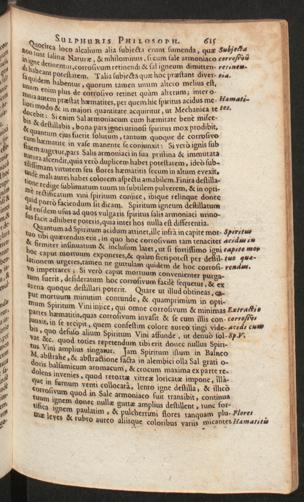 SULPHURIS PHILOSOPH. 615
Quocirca loco alcalium alia subjecta erunt sumenda, quæ Subjecta
non sunt salinæ Naturæ, & nihilominus, si cum sale armoniaco corrosivū
in igne detineantur, corrosivum retinendi & sal igneum dimittendi retinen-
habeant potestatem. Talia subjecta quæ hoc præstant diver- tia.
sa quidem habentur, quorum tamen unum altero melius est,
unum enim plus de corrosivo retinet quàm alterum; inter o-
mnia autem præstat hæmatites, per quem hic spiritus acidus me- Hæmati-
liori modo & in majori quantitate acquiritur, ut Mechanica te tes.
docebit: Si enim Sal armoniacum cum hæmatite benè misce-
bis & destillabis, bona pars igneï urinosi spiritus mox prodibit,
& quantum ejus fuerit solutum, tantum quoque de corrosivo
cum hæmatite in vase manente se conjunxit: Si verò ignis sub
finem augetur, pars Salis armoniaci in sua pristina & immutata
natura ascendit, quia verò dupliceo habet potestatem, ideò sub-
tilissimam virtutem seu flores hæmatitis secum in altum evexit,
unde mali aurei habet colorem aspectu amabilem. Finita destilla-
tione redige sublimatum tuum in subtilem pulverem, & in opti-
mi rectificatique vini spiritum conjice, ibique relinque donec
quid porrò faciendum sit dicam. Spiritum igneum destillatum
ad eosdem usus ad quos vulgaris spiritus salis armoniaci urino-
sus facit adhibere poteris, quia inter hos nulla est differentia.
Quantum ad Spiritum acidum attinet, ille infrà in capite mor- Spiritus
tuo inquærendus erit, in quo hoc corrosivum tam tenaciter acidum ex
& firmiter insinuatum & inclusum latet, ut si fortissimo igni capite mor-
hoc caput mortuum exponeres, & quàm fieri potest per destil- tuo quæ-
lationem urgeres, tamen ne guttulam quidem de hoc corrosi- rendus.
vo impetrares; Si verò caput mortuum convenienter purga-
tum fuerit, desideratum hoc corrosivum facilè sequetur, & ex-
terna quoque destillari poterit. Quare ut illud obtineas, ca-
put mortuum minutim contunde, & quamprimum in opti-
mum Spiritum Vini injice, qui omne corrosivum & minimas Extractio
partes hæmatitis, quas corrosivum invasit & se cum illis con- corrosivi
junxit, in se recipit, quem confestim colore aureo tingi vide- acidi cum
bis, quo desuso alium Spiritum Vini affunde, ut denuò sol- Sp. V.
vat &c. quod toties repetendum tibi erit donec nullus Spiri-
tus Vini amplius tingatur. Jam Spiritum istum in Balneo
M. abstrahe, & abstractione facta in alembici olla Sal grati o-
doris balsamicum aromaceum, & crocum maxima ex parte re-
dolens invenies, quod retortæ vitreæ loricatæ impone, illam-
que in furnum venti collocatâ, lento igne destilla, & illicò
corrosivum quod in Sale armoniaco fuit transibit, continua
tuum ignem donec nullæ guttæ amplius destillent, tunc for-
tifica ignem paulatim, & pulcherrimi flores tanquam plu- Flores
mæ leves & rubeo aureo aliisque coloribus variis micantes Hæmatitis